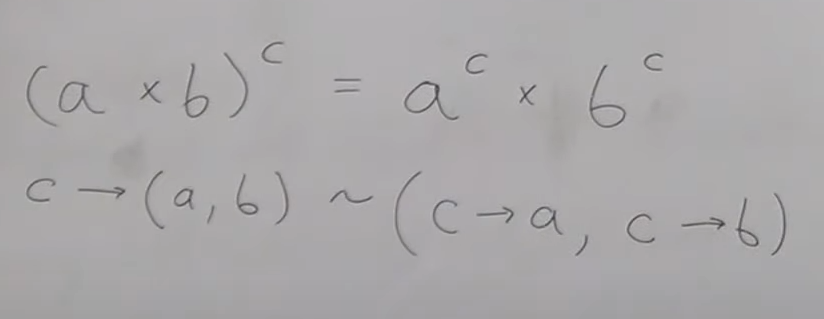 (a × b)^c = a^c × b^c
c → (a, b) ~ (c → a, c → b)